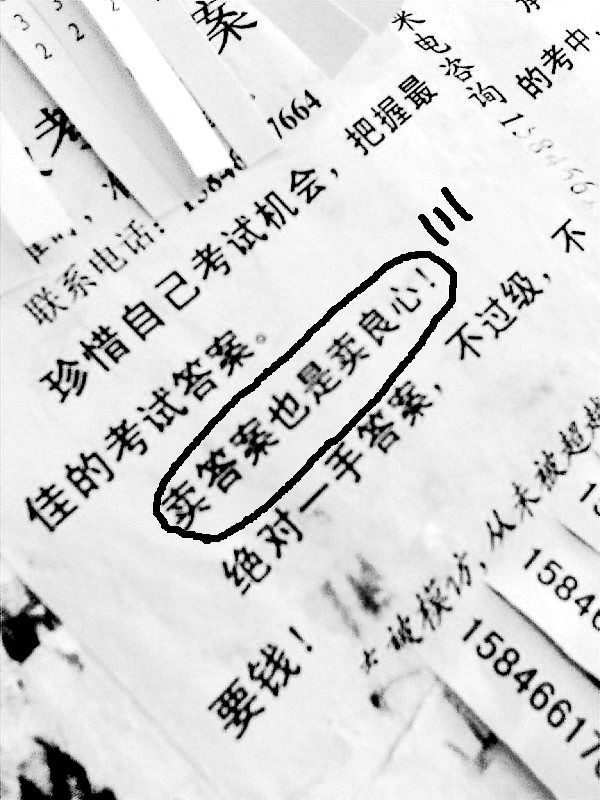 案
考
3
2
3
2
2
联系电话:
7664
来电咨询
的考中,
158466
珍惜自己考试机会，把握最
佳的考试答案。
卖答案也是卖良心！
绝对一手答案，不过级，不
要钱！
被模访,从未被超越
15846
1584661